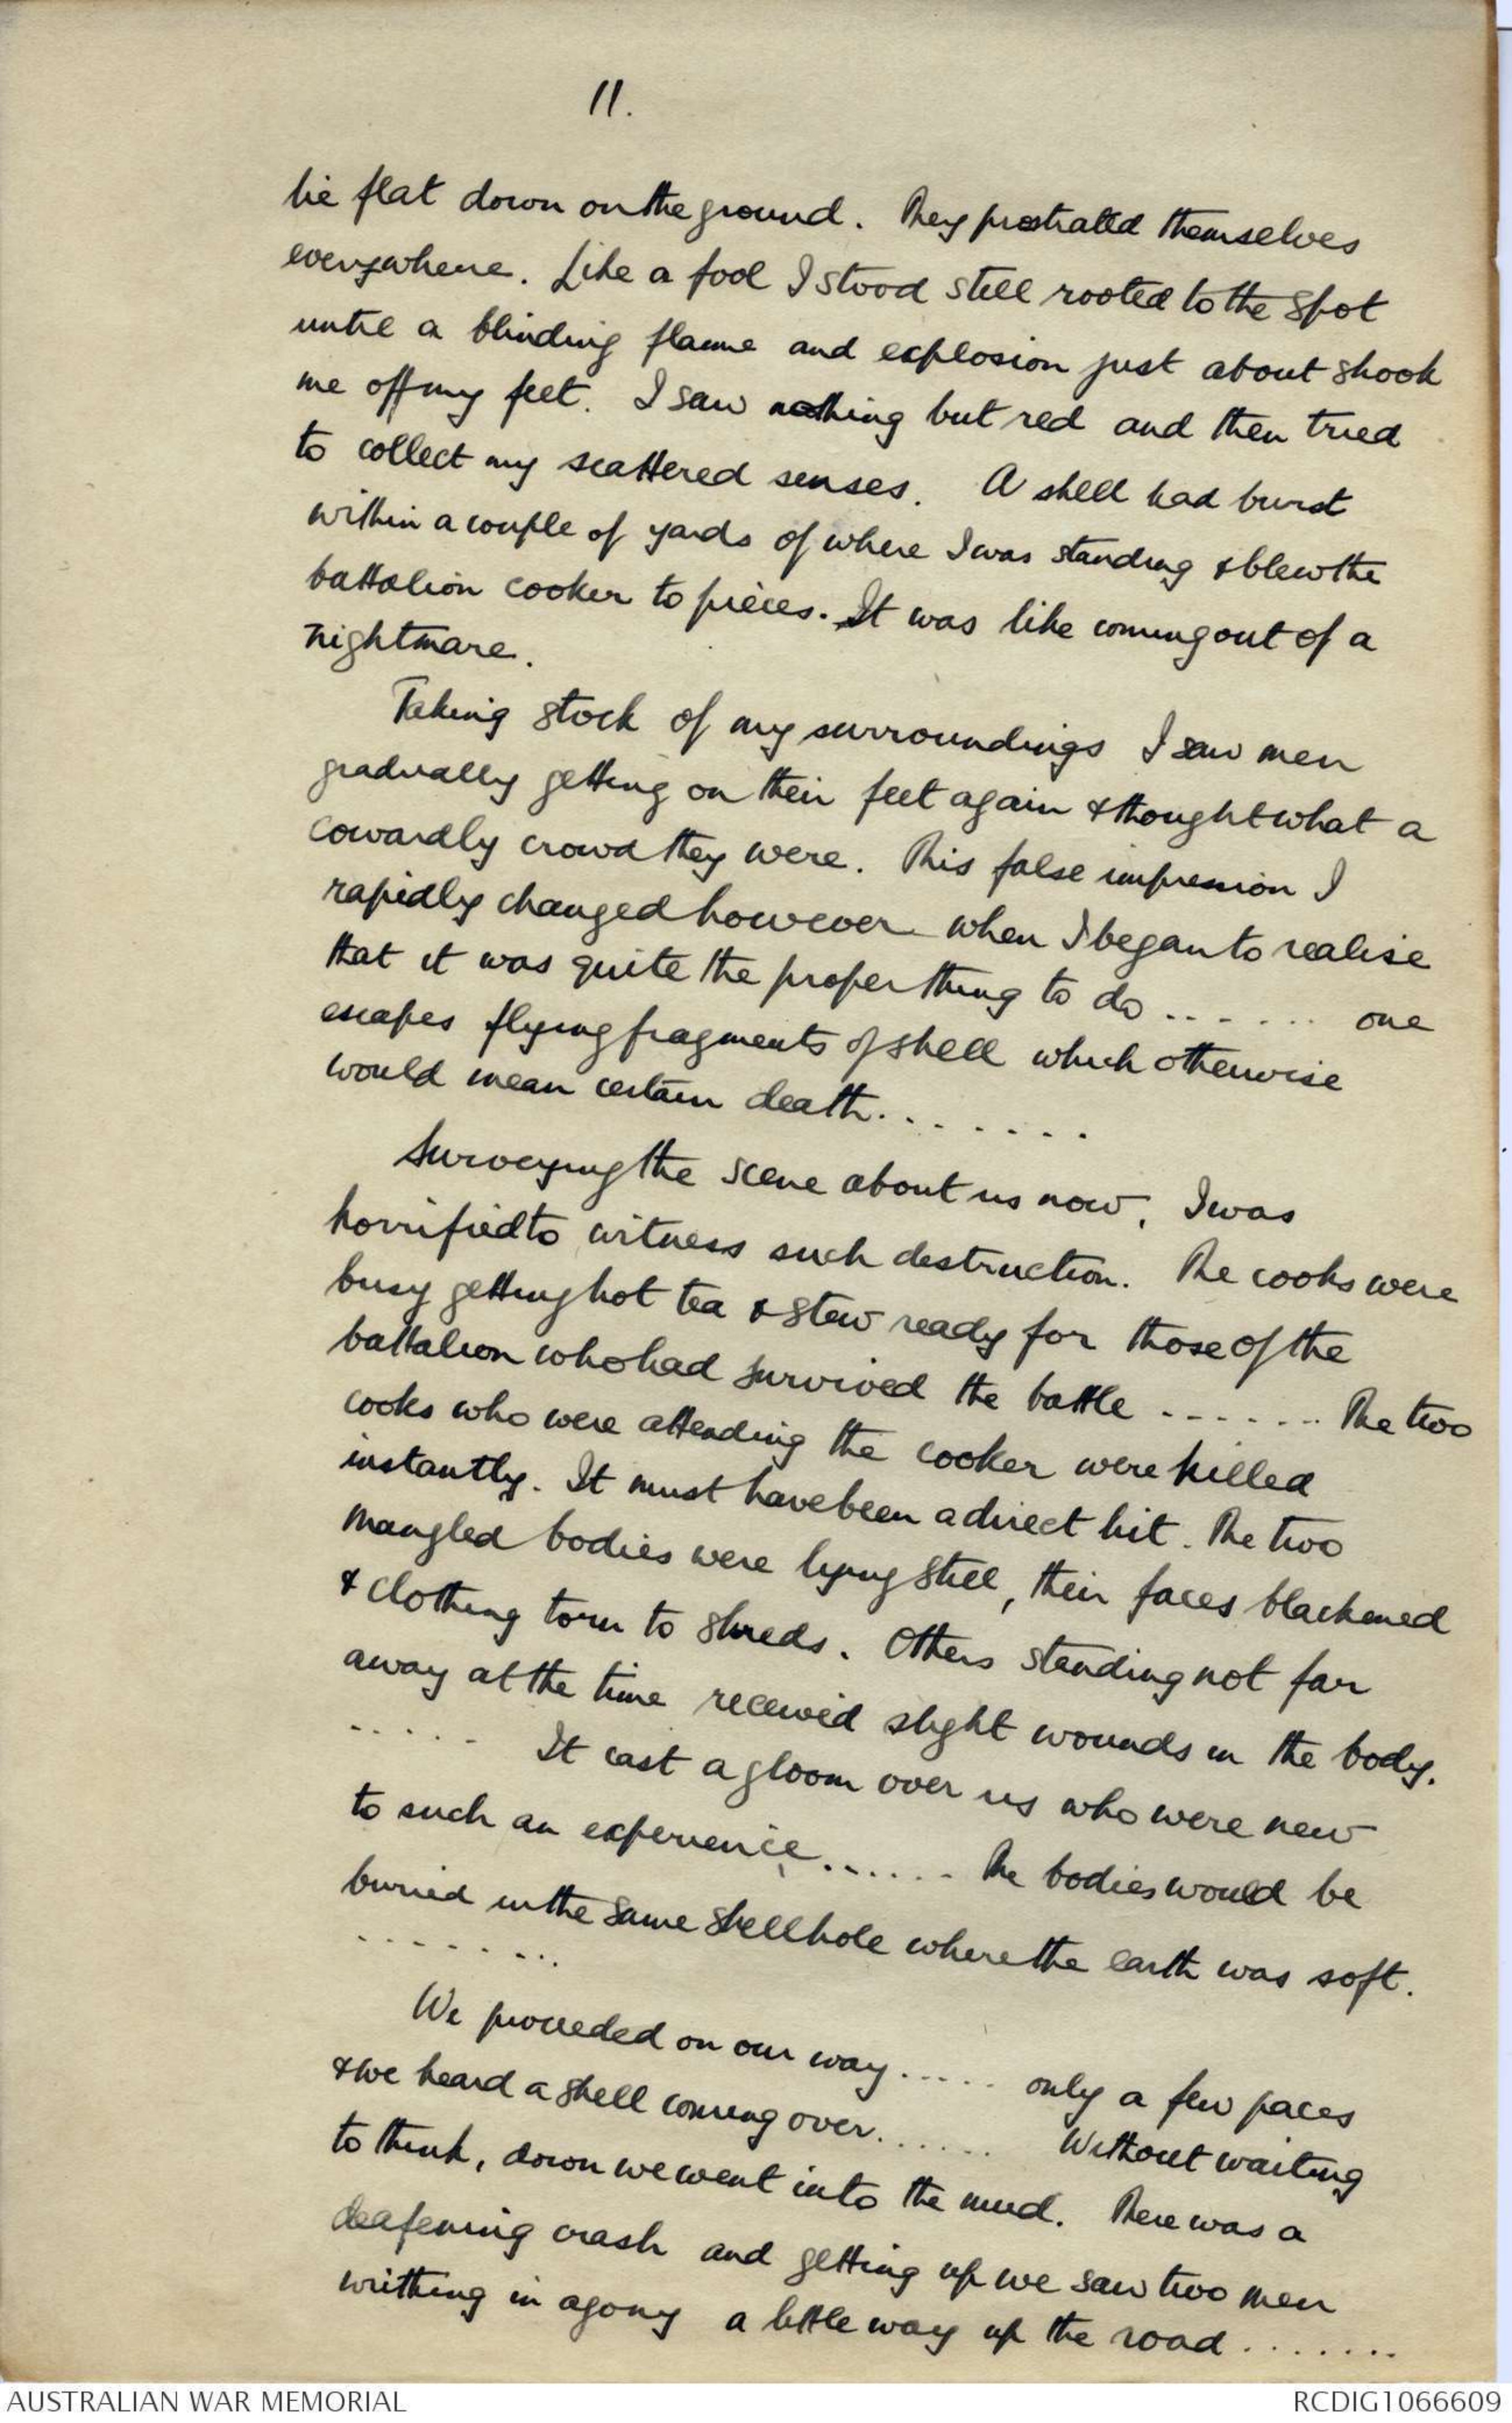 11.
lie flat down on the ground. They prostrated themselves
everywhere. Like a fool I stood still rooted to the spot
until a blinding flame and explosion just about shook
me off my feet. I saw nothing but red and then tried
to collect my scattered senses. A shell had burst
within a couple of yards of where I was standing & blew the
battalion cooker to pieces. It was like coming out of a
nightmare.
Taking stock of my surroundings I saw men
gradually getting on their feet again & thought what a
cowardly crowd they were. This false impression I
rapidly changed however when I began to realise
that it was quite the proper thing to do ....... one
escapes flying fragments of shell which otherwise
would mean certain death........
Surveying the scene about us now, I was
horrified to witness such destruction. The cooks were
busy getting hot tea & stew ready for those of the
battalion who had survived the battle ....... The two
cooks who were attending the cooker were killed
instantly. It must have been a direct hit. The two
mangled bodies were lying still, their faces blackened
& clothing torn to shreds. Others standing not far
away at the time received slight wounds in the body.
..... It cast a gloom over us who were new
to such an experience....... The bodies would be
buried in the same shellhole where the earth was soft.
........
We proceeded on our way..... only a few paces
& we heard a shell coming over....... Without waiting
to think, down we went into the mud. There was a
deafening crash and getting up we saw two men
writhing in agony a little way up the road.......
AUSTRALIAN WAR MEMORIAL
RCDIG1066609